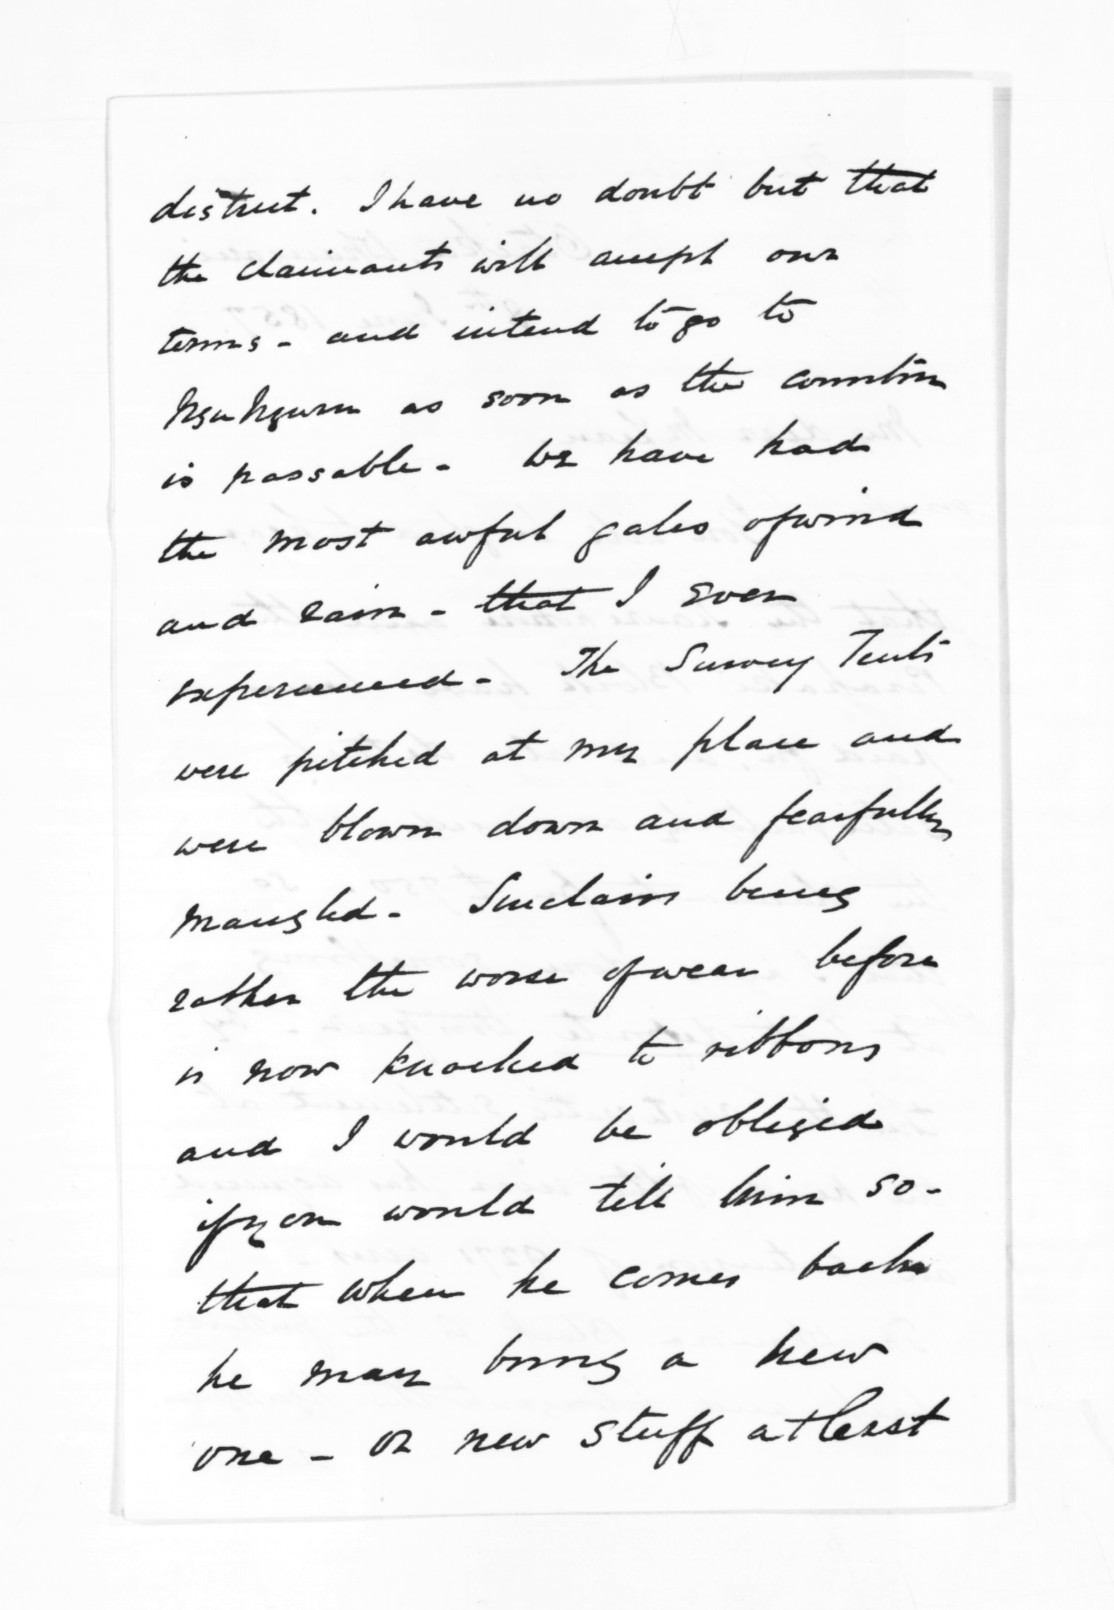 district. I have no doubt but that
the claimants will accept our
terms - and intend to go to
as soon as the country
is passable - We have had
the most awful gales of wind
and rain - that I ever
experienced - The Survey Tents
were pitched at my place and
were blown down and fearfully
mangled - Sinclairs being
rather the worse of wear before
is now knocked to ribbons
and I would be obliged
if you would tell him so -
that when he comes back
he may bring a new
one - or new stuff at least